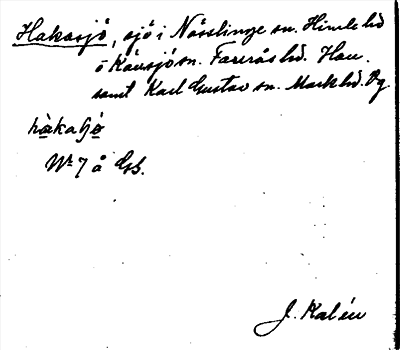 Hakasjö, sjö i Nösslinge sn. Himle hd
o Kävsjö sn. Faurås hd. Hall.
samt Karl Gustav sn. Mark hd. Vg
hàkaʃö
Nr 7 å Gs.
J. Kalén